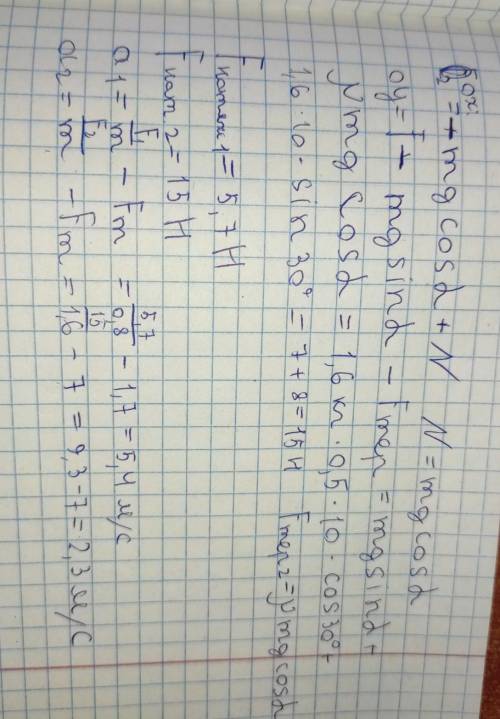 ox:
F₂ = -mg cosα + N   N = mg cosα
oy = F + mg sinα - Fтер = mg sinα +
μmg cosα = 1,6 кг · 0,5 · 10 · cos30° +
1,6 · 10 · sin 30° = 7 + 8 = 15 Н   Fтер₂ = μmg cosα
Fнатяж 1 = 5,7 Н
Fнат 2 = 15 Н
a₁ = F₁/m - Fт = 5,7/0,8 - 1,7 = 5,4 м/с
a₂ = F₂/m - Fт = 15/1,6 - 7 = 9,3 - 7 = 2,3 м/с